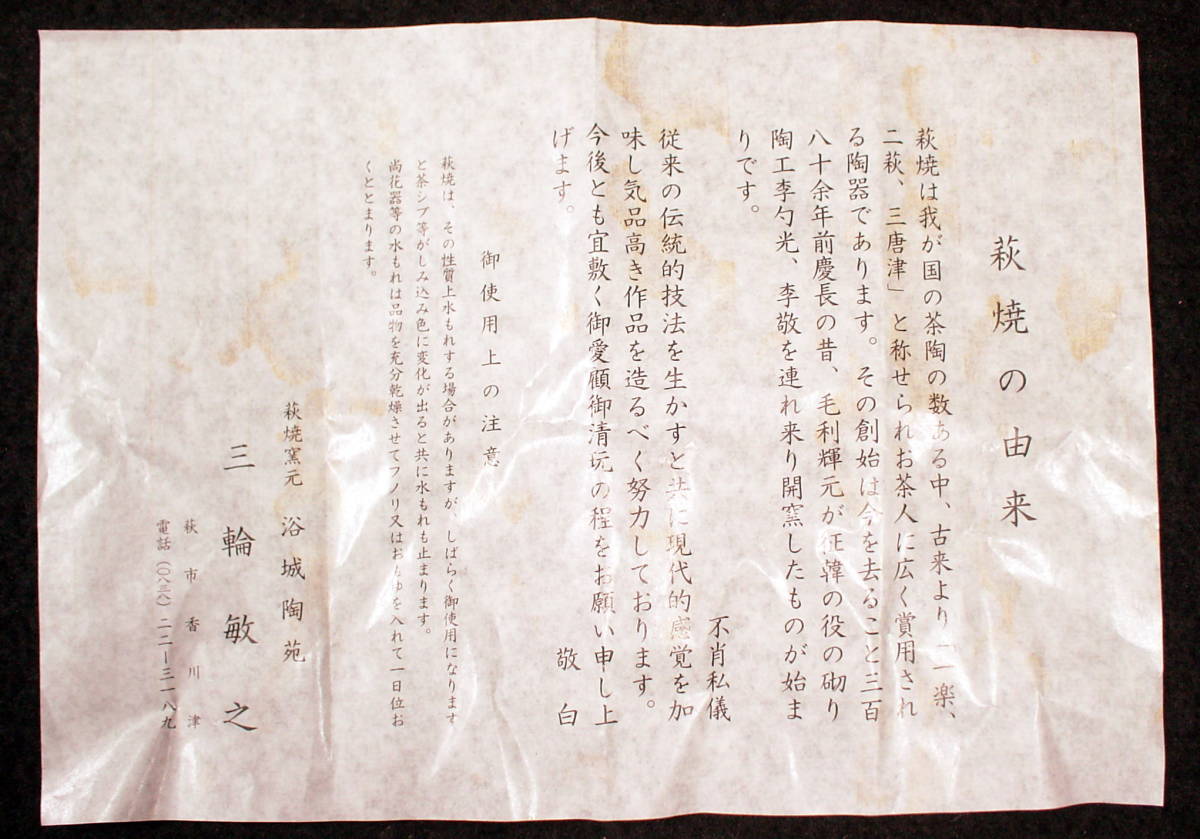 萩焼の由来
萩焼は我が国の茶陶の数ある中、古来より「一楽、
二萩、三唐津」と称せられお茶人に広く賞用され
る陶器であります。その創始は今を去ること三百
八十余年前慶長の昔、毛利輝元が征韓の役の砌り
陶工李勺光、李敬を連れ来り開窯したものが始ま
りです。
不肖私儀
従来の伝統的技法を生かすと共に現代的感覚を加
味し気品高き作品を造るべく努力しております。
今後とも宜敷く御愛顧御清玩の程をお願い申し上
げます。
敬白
御使用上の注意
萩焼は、その性質上水もれする場合がありますが、しばらく御使用になります
と茶シブ等がしみ込み色に変化が出ると共に水もれも止まります。
尚花器等の水もれは品物を充分乾燥させてフノリ又はおもゆを入れて一日位お
くととまります。
萩焼窯元 浴城陶苑
三輪敏之
萩市香川津
電話(〇八三八)二二ー三一八九